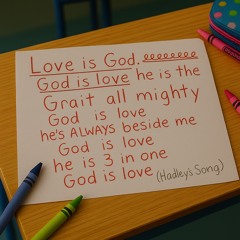 Love is God.
God is love he is the
Grait all mighty
God is love
he's ALWAYS beside me
God is love
he is 3 in one
God is love (Hadley's Song)